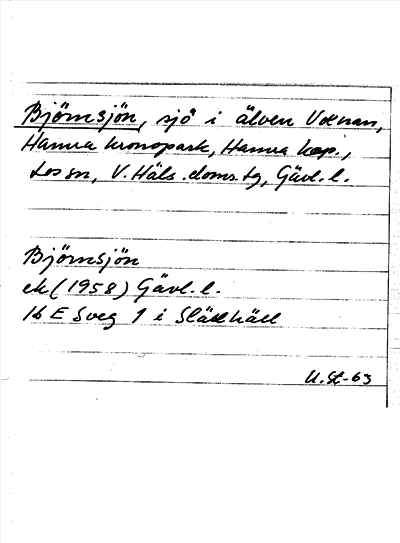 Björnsjön, sjö i älven Voxnan,
Hamra kronopark, Hamra kap.,
Los sn, V. Häls. doms. tg, Gävl. l.
Björnsjön
ek (1958) Gävl. l.
16 E Sveg 1 i
U.St-63